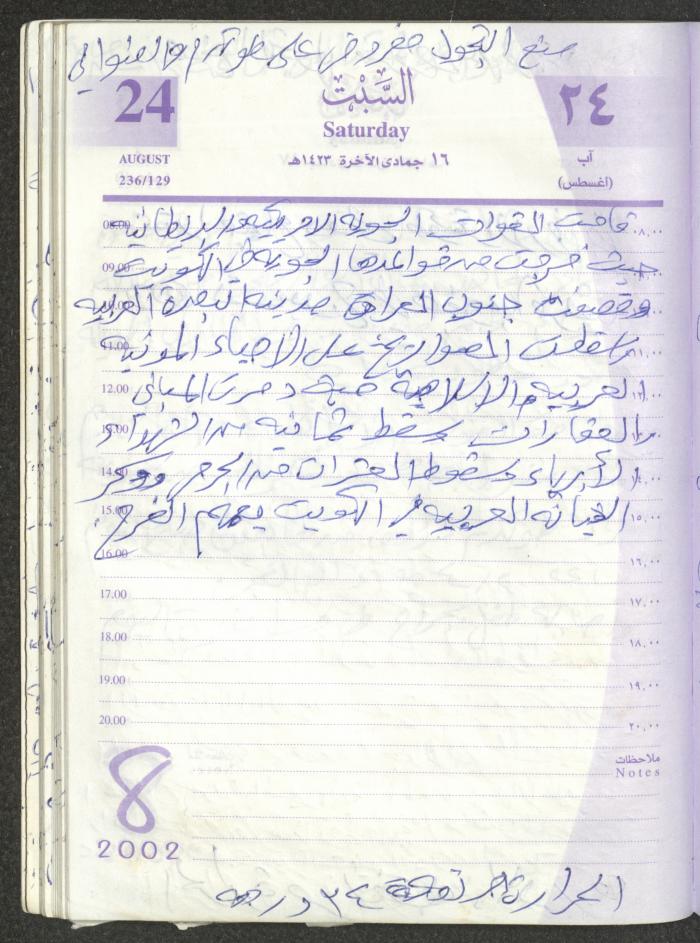 منع التجول مفروض على طولكرم والضواحي
24
السَّبْت
٢٤
Saturday
AUGUST
١٦ جمادى الآخرة ١٤٢٣هـ
آب
236/129
(أغسطس)
08.00 قامت القوات الجوية الامريكية والبريطانية ٠٨,٠٠
09.00 حيث خرجت من قواعدها الجوية في الكويت
وقصفت جنوب العراق مدينة البصرة العربية
11.00 الصواريخ على الأحياء ١١,٠٠
12.00 العربية والإسلامية حيث دمرت المباني ١٢,٠٠
13.00 والعقارات وسقط ثمانية من الشهداء
14.00 الأبرياء وسقوط العشرات من الجرحى ووكر ١٤,٠٠
15.00 الخيانة العربية في الكويت يعمهم الفرح ١٥,٠٠
16.00 ١٦,٠٠
17.00 ١٧,٠٠
18.00 ١٨,٠٠
19.00 ١٩,٠٠
20.00 ٢٠,٠٠
ملاحظات
Notes
8
2002
الحرارة مرتفعة ٣٤ درجة